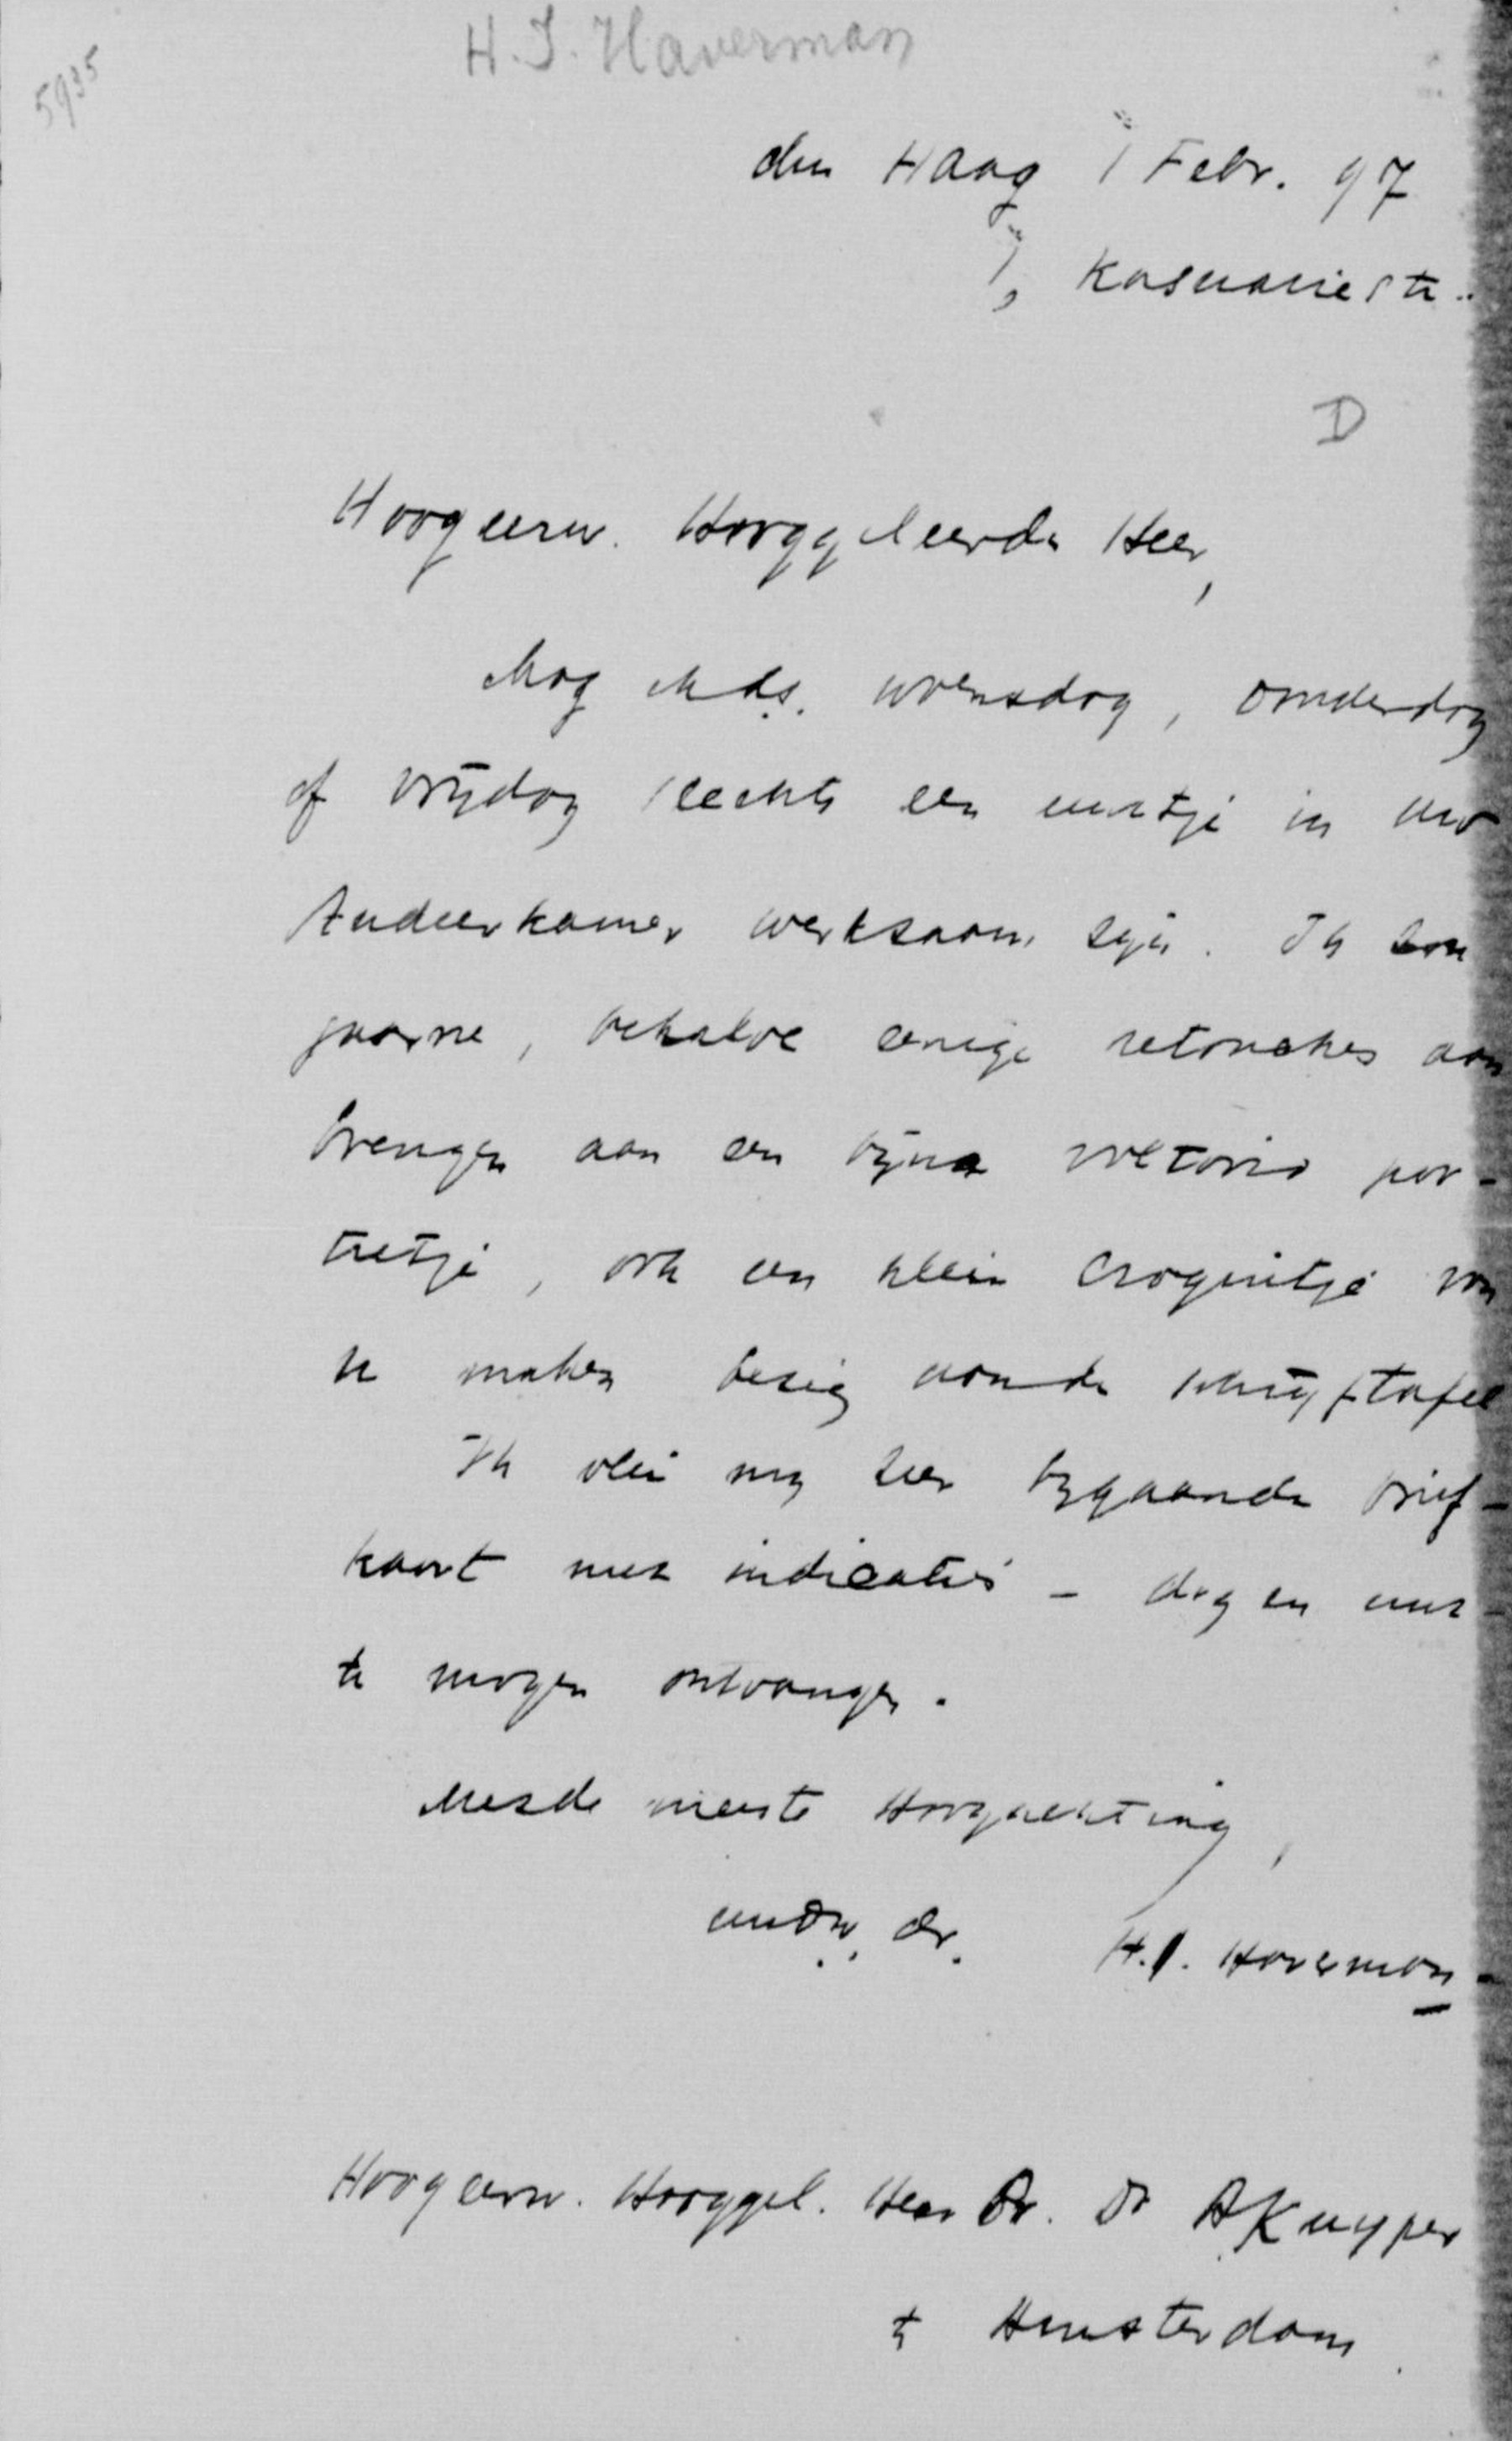 H. J. Haverman
5935
den Haag 1 Febr. 97
7, Kasuariestr.
D
Hoogeerw. Hooggeleerde Heer,
Mag ik a.s. woensdag, donderdag
of vrijdag slechts een uurtje in uw
studeerkamer werksaam zijn. Ik zou
gaarne, behalve eenige retouches aan
brengen aan een bijna voltooid por-
tretje, ook een klein croquitje van
u maken bezig aan de schrijftafel
Ik vlei mij zeer bijgaande brief-
kaart met indicatie - dag en uur -
te mogen ontvangen.
Met de meeste Hoogachting,
uw dw. dr. H.J. Haverman
Hoogeerw. Hooggel. Heer Dr. A Kuyper
te Amsterdam